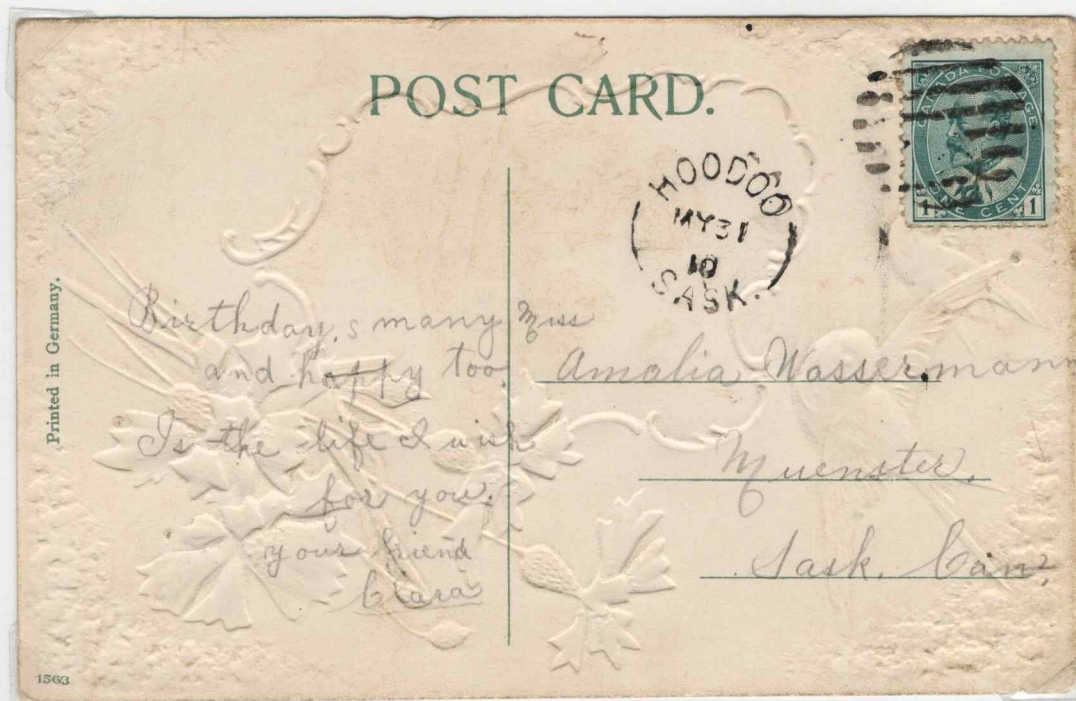 POST CARD.
CANADA POSTAGE
ONE CENT
1 1
HOODOO
MY 31
10
SASK.
Printed in Germany.
Birthday,s many
and happy too.
Is the life I wish
for you.
your friend
Clara
Miss
Amalia Wassermann
Muenster,
Sask. Can.
1563